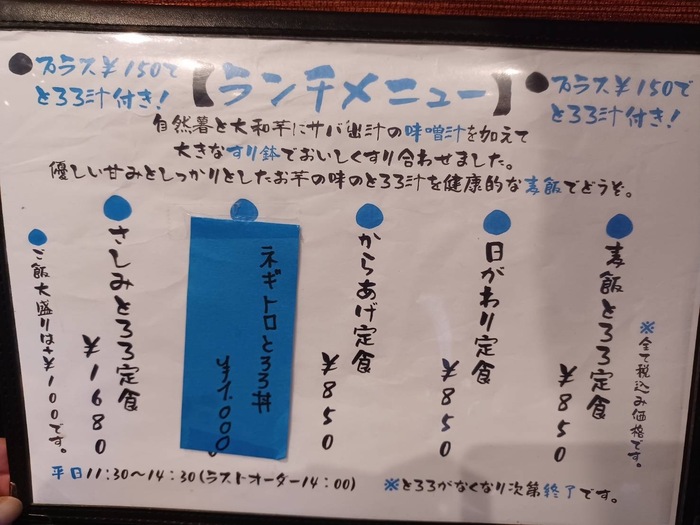 ●プラス¥150で
とろろ汁付き!
【ランチメニュー】
●プラス¥150で
とろろ汁付き!
自然薯と大和芋にサバ出汁の味噌汁を加えて
大きなすり鉢でおいしくすり合わせました。
優しい甘みとしっかりとしたお芋の味のとろろ汁を健康的な麦飯でどうぞ。
※全て税込み価格です。
●麦飯とろろ定食
¥850
●日がわり定食
¥850
●からあげ定食
¥850
●ネギトロとろろ丼
¥1.000
●さしみとろろ定食
¥1680
●ご飯大盛りは+¥100です。
平日11:30～14:30(ラストオーダー14:00)
※とろろがなくなり次第終了です。